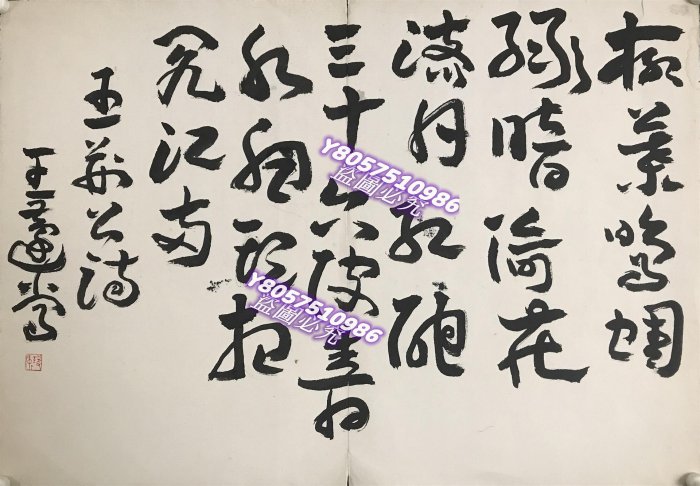 柳葉鳴蜩
綠暗荷花
落日紅酣
三十六陂春
水白頭想
見江南
王荊公詩
王蘧常
Y8057510986
盜圖必究
Y8057510986
盜圖必究